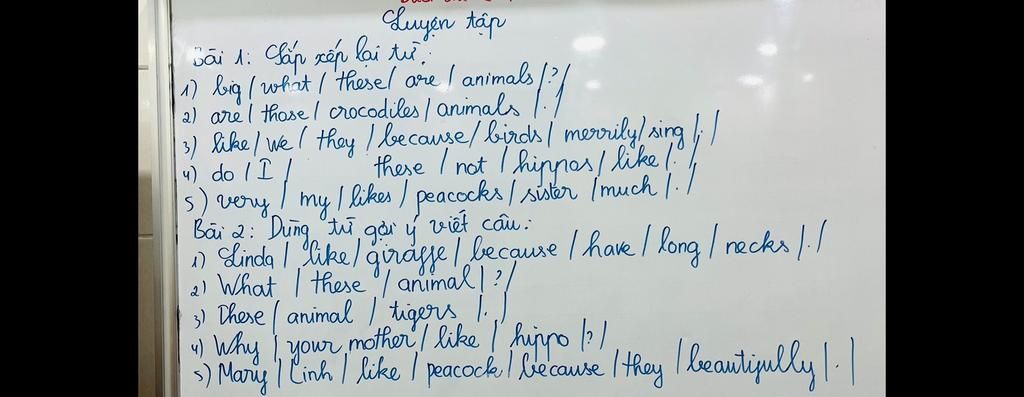 Luyện tập
Bài 1: Sắp xếp lại từ:
1) big / what / these / are / animals / ? /
2) are / those / crocodiles / animals / . /
3) like / We / they / because / birds / merrily / sing / . /
4) do / I / these / not / hippos / like / . /
5) very / my / likes / peacocks / sister / much / . /
Bài 2: Dùng từ gợi ý viết câu:
1) Linda / like / giraffe / because / have / long / necks / . /
2) What / these / animal / ? /
3) These / animal / tigers / . /
4) Why / your mother / like / hippo / ? /
5) Mary / Linh / like / peacock / because / they / beautifully / . /